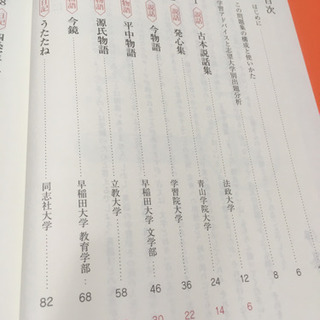 目次
はじめに
この問題集の構成と使いかた 6
学習アドバイスと志望大学別出題分析 8
1 説話 古本説話集 法政大学 12 6
説話 発心集 青山学院大学 24 14
説話 今物語 学習院大学 36 22
平中物語 早稲田大学 文学部 46 30
源氏物語 立教大学 58
今鏡 早稲田大学 教育学部 68
うたたね 同志社大学 82
8 日記